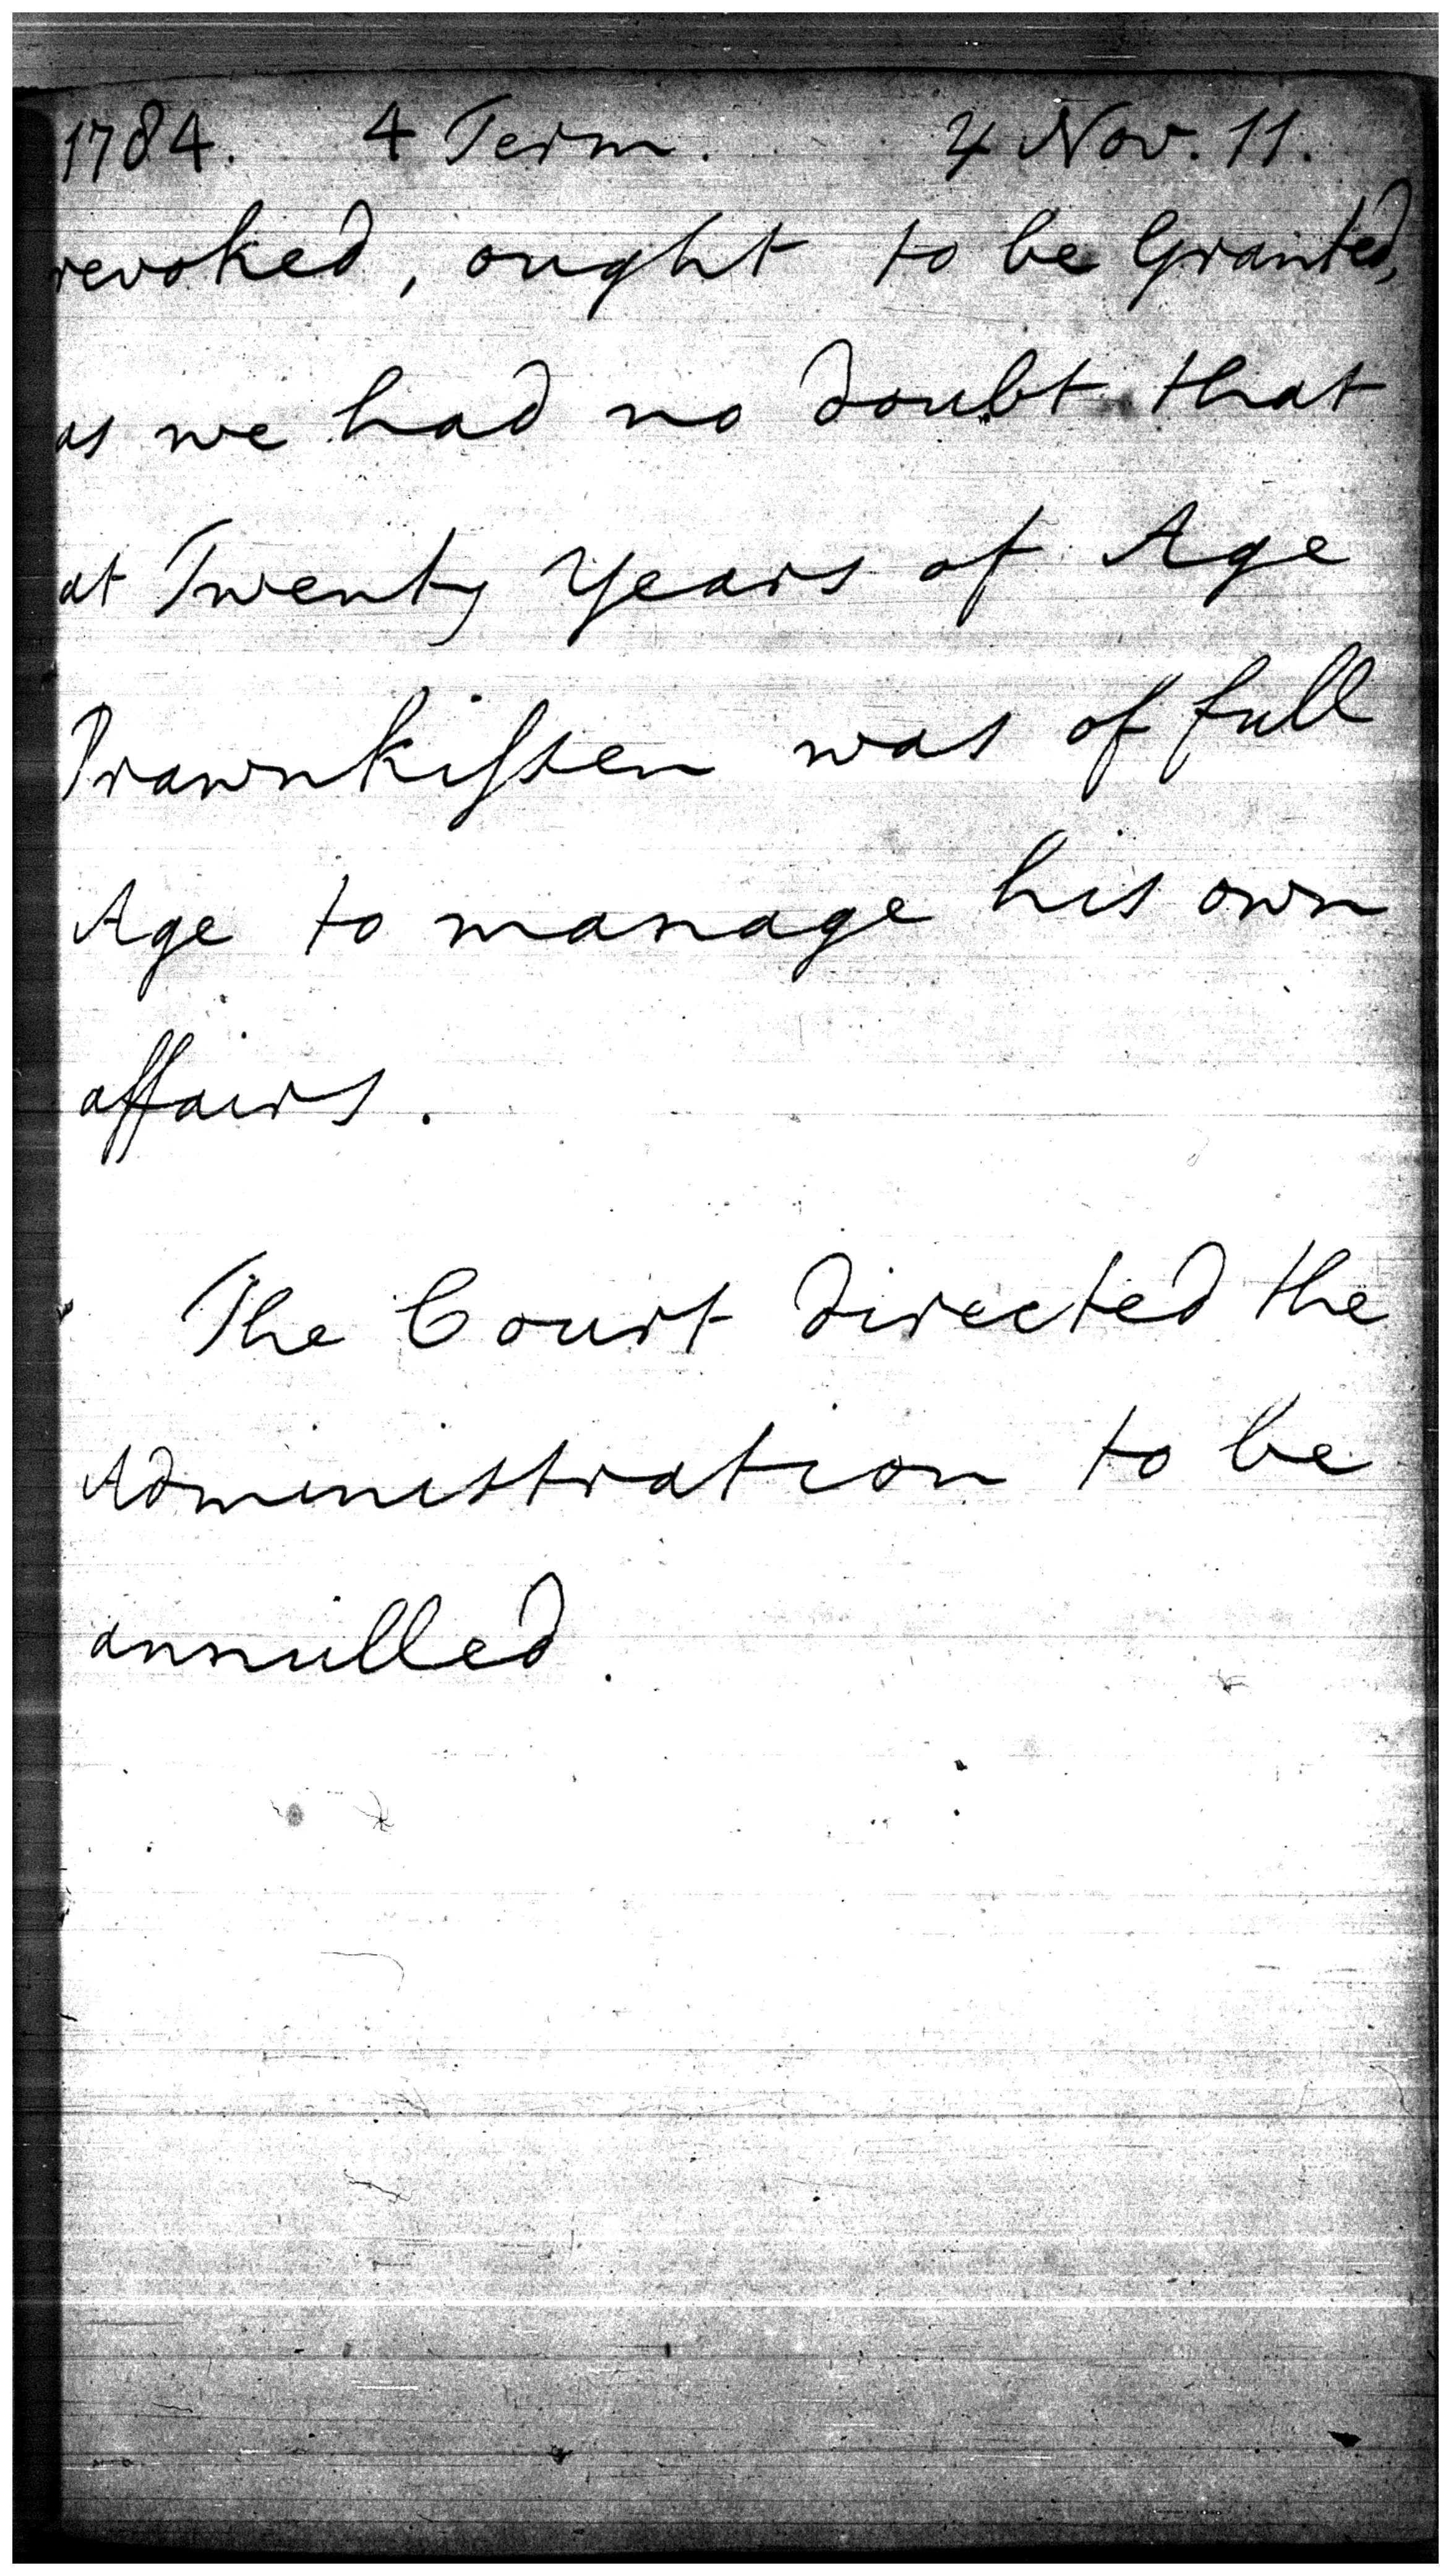 1784. 4 Term. 4 Nov. 11.
revoked, ought to be Granted,
as we had no doubt that
at Twenty Years of Age
Prawnkiſsen was of full
Age to manage his own
affairs.
The Court directed the
Administration to be
annulled.